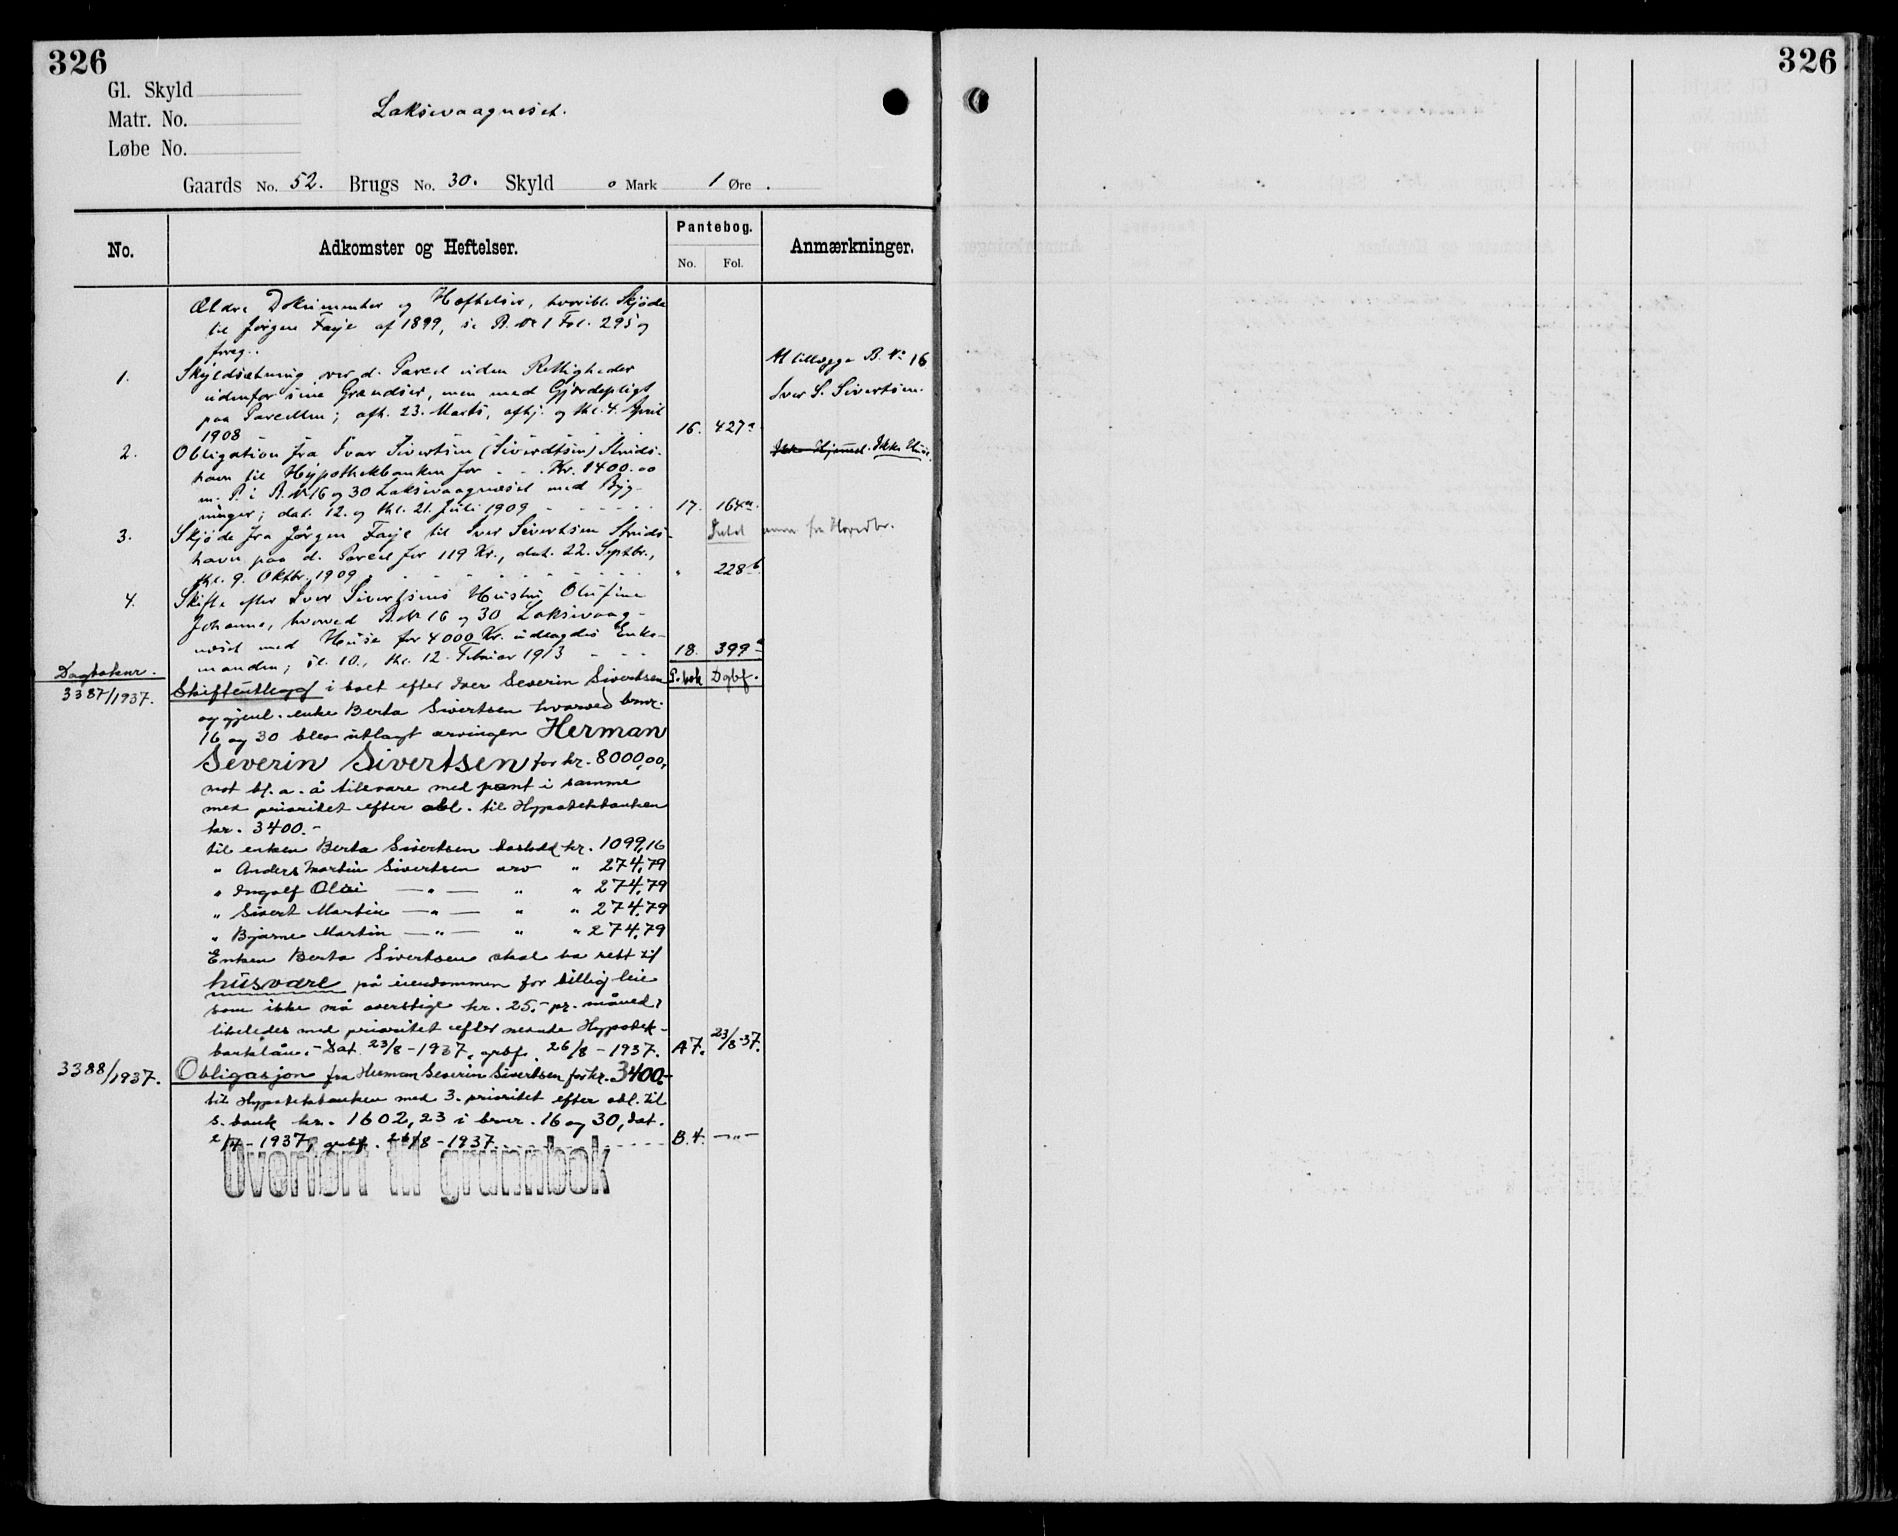 326
326
Gl. Skyld
Matr. No.
Løbe No.
Laksevaagneset.
Gaards No. 52. Brugs No. 30. Skyld 0 Mark 1 Øre.
No.
Adkomster og Heftelser.
Pantebog.
No. Fol.
Anmærkninger.
Ældre Dokumenter og Hæftelser, hvoribl. Skjøde
til Jørgen Faye af 1899, se B. № 1 Fol. 295 og
foreg..
1. Skyldsætning over d. Parcel uden Rettigheder
udenfor sine Grændser, men med Gjerdepligt
paa Parcellen; afh. 23. Marts, afhj. og thl. 4. April
1908 16. 427a
At tillægge B. No 16
Iver S. Sivertsen.
2. Obligation fra Ivar Sivertsen (Siverdtsen) Strids-
havn til Hypothekbanken for - - . Kr. 1400.00
m. P. i B. № 16 og 30 Laksevaagneset med Byg-
ninger; dat. 12. og thl. 21. Juli 1909 17. 164a.
Ikke Hjemmel. Ikke Huse.
3. Skjøde fra Jørgen Faye til Iver Sivertsen Strids-
havn paa d. Parcel for 119 Kr., dat. 22. Septbr.,
thl. 9. Oktbr. 1909 " 228b
4. Skifte efter Iver Sivertsens Hustru Olufine
Johanne, hvorved B. № 16 og 30 Laksevaag-
neset med Huse for 4000 Kr. udlagdes Enke-
manden; sl. 10., thl. 12. Februar 1913 18. 399a
Dagboknr.
P.bok Dgbf.
3387/1937. Skifteutlegg i boet efter Iver Severin Sivertsen
og gjenl. enke Berta Sivertsen hvorved brnr.
16 og 30 blev utlagt arvingen Herman
Severin Sivertsen for kr. 8000,00,
mot bl. a. å tilsvare med pant i samme
med prioritet efter obl. til Hypotekbanken
kr. 3400.-
til enken Berta Sivertsen boslodd kr. 1099,16
" Anders Martin Sivertsen arv " 274,79
" Ingolf Olai —"— " " 274,79
" Sivert Martin —"— " " 274,79
" Bjarne Martin —"— " " 274,79
Enken Berta Sivertsen skal ha rett til
husvære på eiendommen for billig leie
som ikke må overstige kr. 25,- pr. måned,
likeledes med prioritet efter nevnte Hypotek-
banklån. - Dat. 23/8 - 1937, grbf. 26/8 - 1937. A7. 23/8-37.
3388/1937. Obligasjon fra Herman Severin Sivertsen for kr. 3400.-
til Hypotekbanken med 3. prioritet efter obl. til
s. bank kr. 1602,23 i brnr. 16 og 30, dat.
2/7 - 1937, grbf. 26/8 - 1937. B.4. —"—
Overført til grunnbok